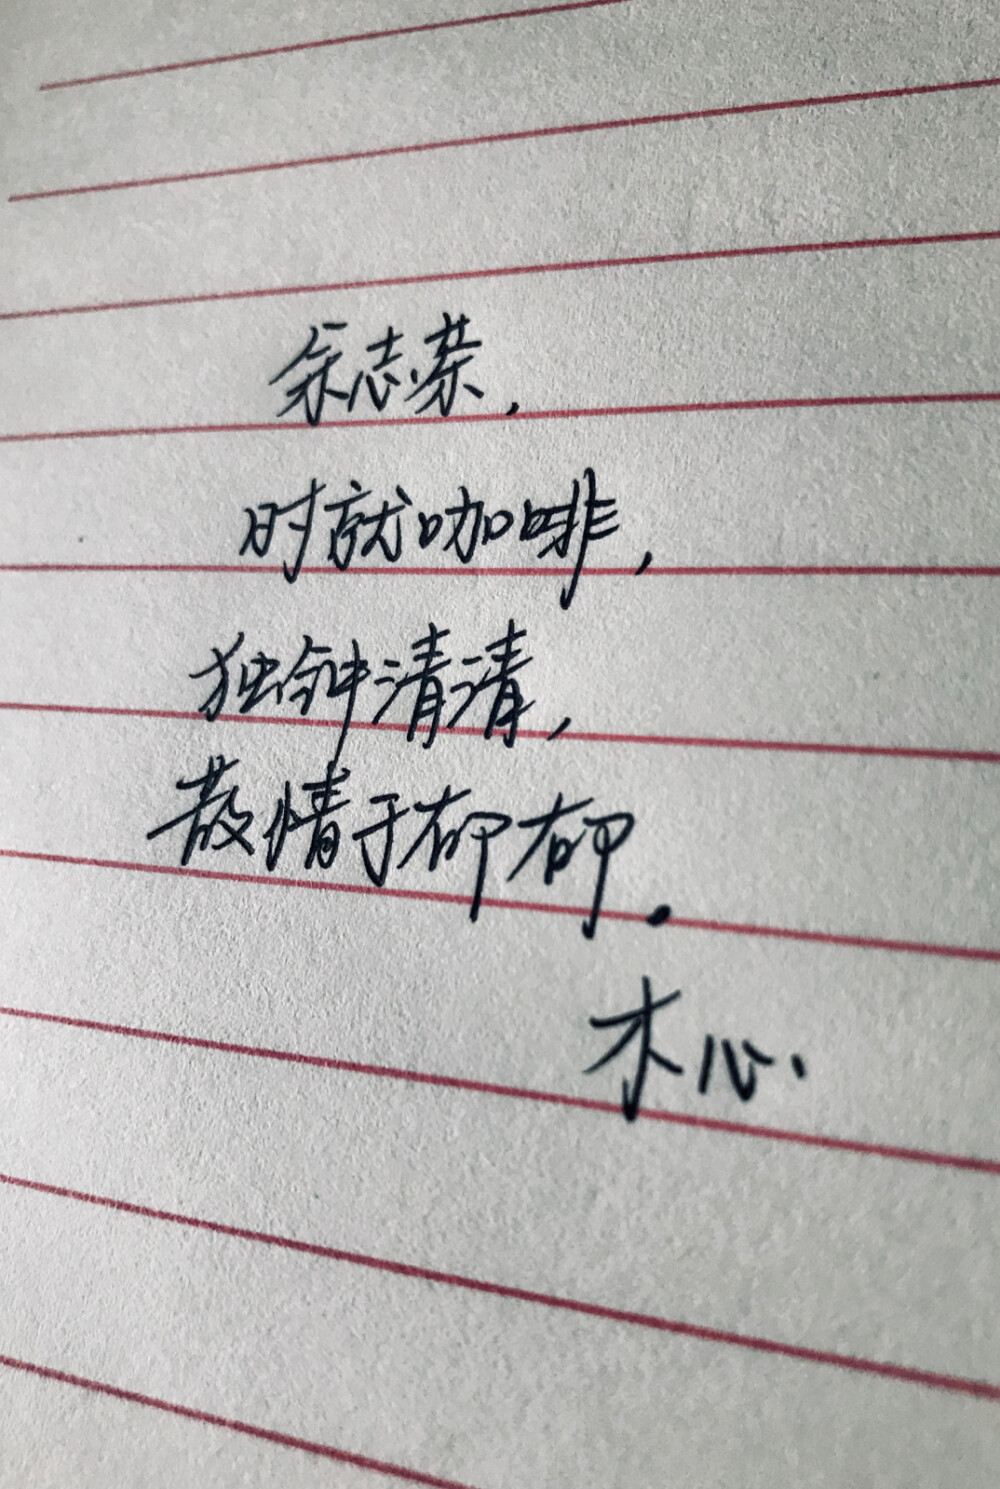 余志恭,
时就咖啡,
独钟清清,
散情于郁郁.
木心.